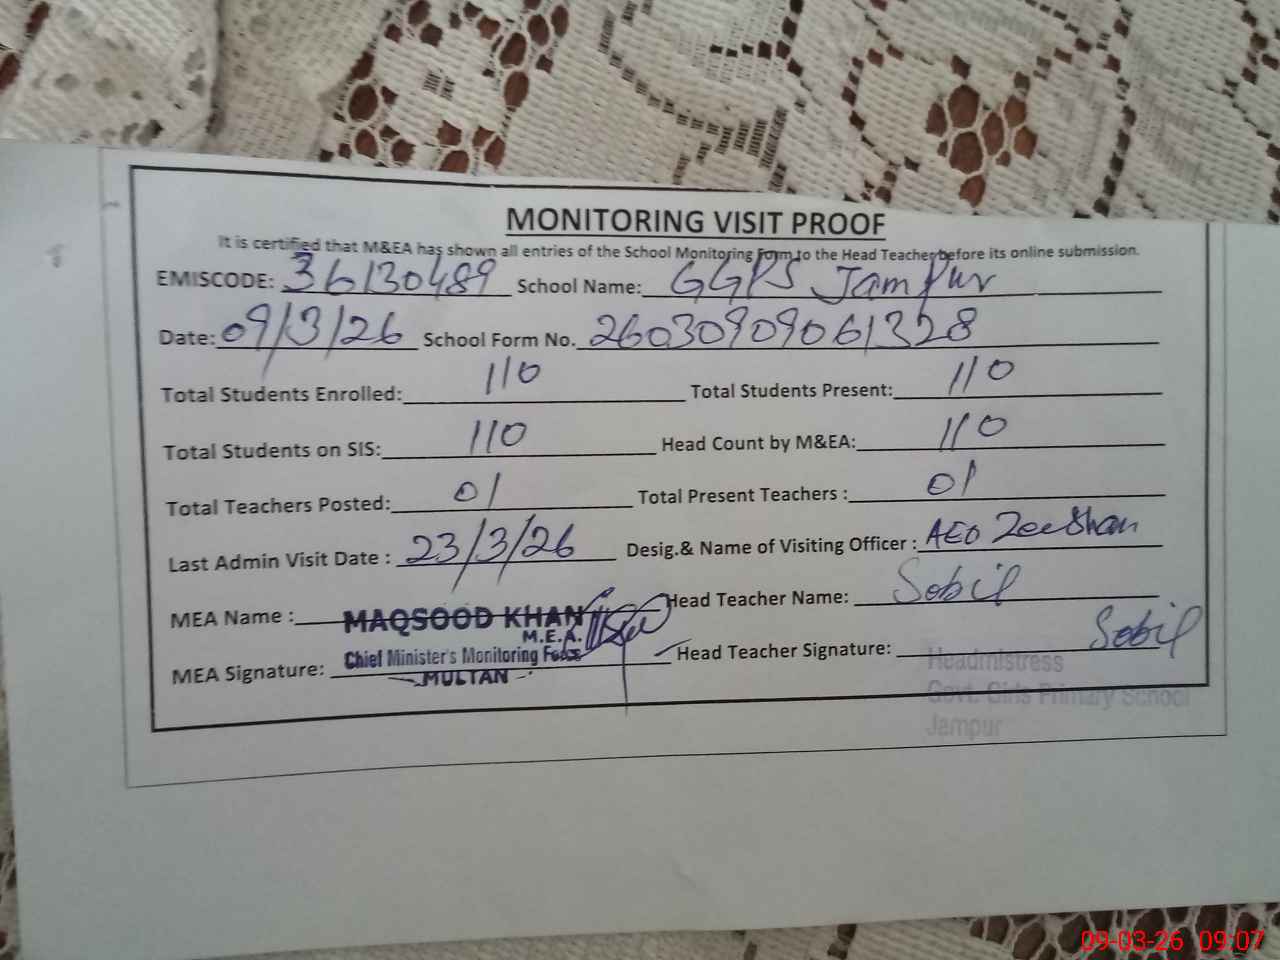 MONITORING VISIT PROOF
It is certified that M&EA has shown all entries of the School Monitoring Form to the Head Teacher before its online submission.
EMISCODE: 36130489 School Name: GGPS Jampur
Date: 09/3/26 School Form No. 26030909061328
Total Students Enrolled: 110 Total Students Present: 110
Total Students on SIS: 110 Head Count by M&EA: 110
Total Teachers Posted: 01 Total Present Teachers : 01
Last Admin Visit Date : 23/3/26 Desig.& Name of Visiting Officer : AEO Zeeshan
MEA Name : MAQSOOD KHAN Head Teacher Name:
M.E.A.
MEA Signature: Chief Minister's Monitoring Force Head Teacher Signature:
MULTAN
Headmistress
Govt. Girls Primary School
Jampur
09-03-26 09:07